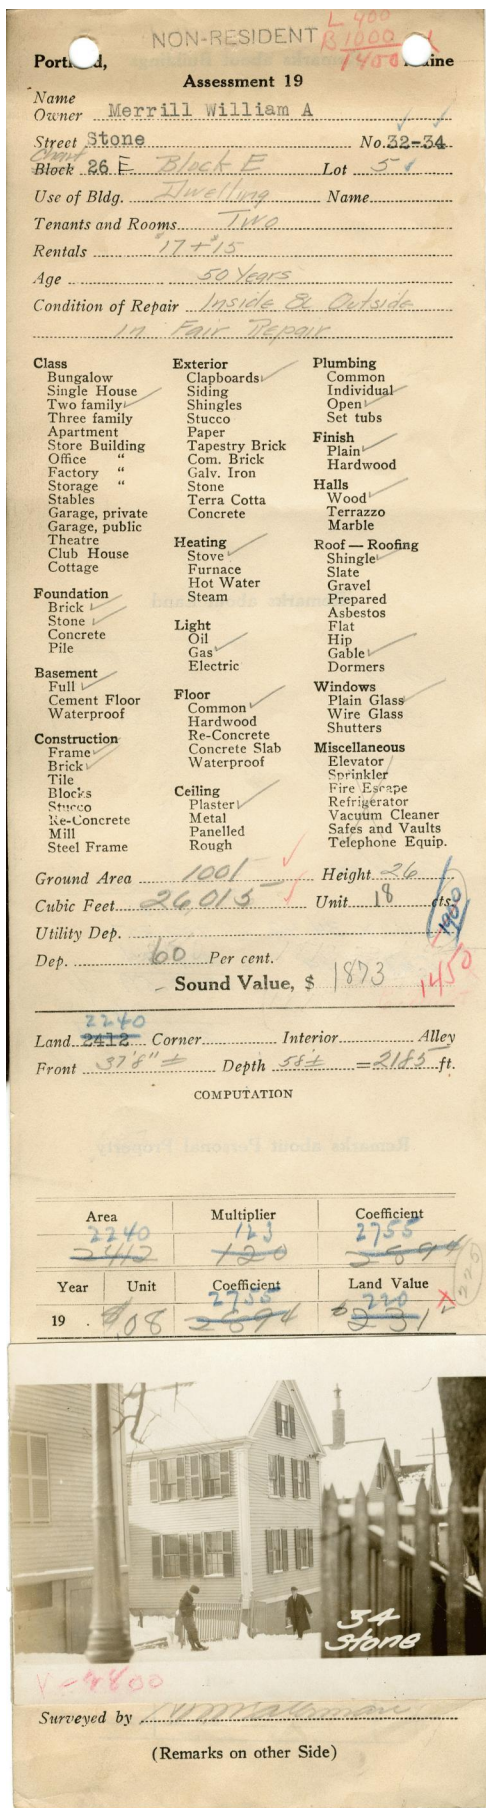 NON-RESIDENT
L 400
B 1000
1400
Portland, Maine
Assessment 19
Name
Owner Merrill William A
Street Stone No. 32-34
Chart
Block 26 E Block E Lot 5
Use of Bldg. Dwelling Name
Tenants and Rooms Two
Rentals $17 + $15
Age 50 Years
Condition of Repair Inside & Outside
in Fair Repair
Class
Bungalow
Single House
Two family
Three family
Apartment
Store Building
Office "
Factory "
Storage "
Stables
Garage, private
Garage, public
Theatre
Club House
Cottage
Foundation
Brick
Stone
Concrete
Pile
Basement
Full
Cement Floor
Waterproof
Construction
Frame
Brick
Tile
Blocks
Stucco
Re-Concrete
Mill
Steel Frame
Exterior
Clapboards
Siding
Shingles
Stucco
Paper
Tapestry Brick
Com. Brick
Galv. Iron
Stone
Terra Cotta
Concrete
Heating
Stove
Furnace
Hot Water
Steam
Light
Oil
Gas
Electric
Floor
Common
Hardwood
Re-Concrete
Concrete Slab
Waterproof
Ceiling
Plaster
Metal
Panelled
Rough
Plumbing
Common
Individual
Open
Set tubs
Finish
Plain
Hardwood
Halls
Wood
Terrazzo
Marble
Roof — Roofing
Shingle
Slate
Gravel
Prepared
Asbestos
Flat
Hip
Gable
Dormers
Windows
Plain Glass
Wire Glass
Shutters
Miscellaneous
Elevator
Sprinkler
Fire Escape
Refrigerator
Vacuum Cleaner
Safes and Vaults
Telephone Equip.
Ground Area 1001 Height 26
Cubic Feet 26,015 Unit 18 cts.
1900
Utility Dep.
Dep. 60 Per cent.
Sound Value, $ 1873
1450
2240
Land 2412 Corner Interior Alley
Front 37'8" ± Depth 58± = 2185 ft.
COMPUTATION
Area Multiplier Coefficient
2240 123 2755
2412 120 2894
225
Year Unit Coefficient Land Value
2755 220
19 . $.08 2894 $231
34
Stone
V-4800
Surveyed by
(Remarks on other Side)